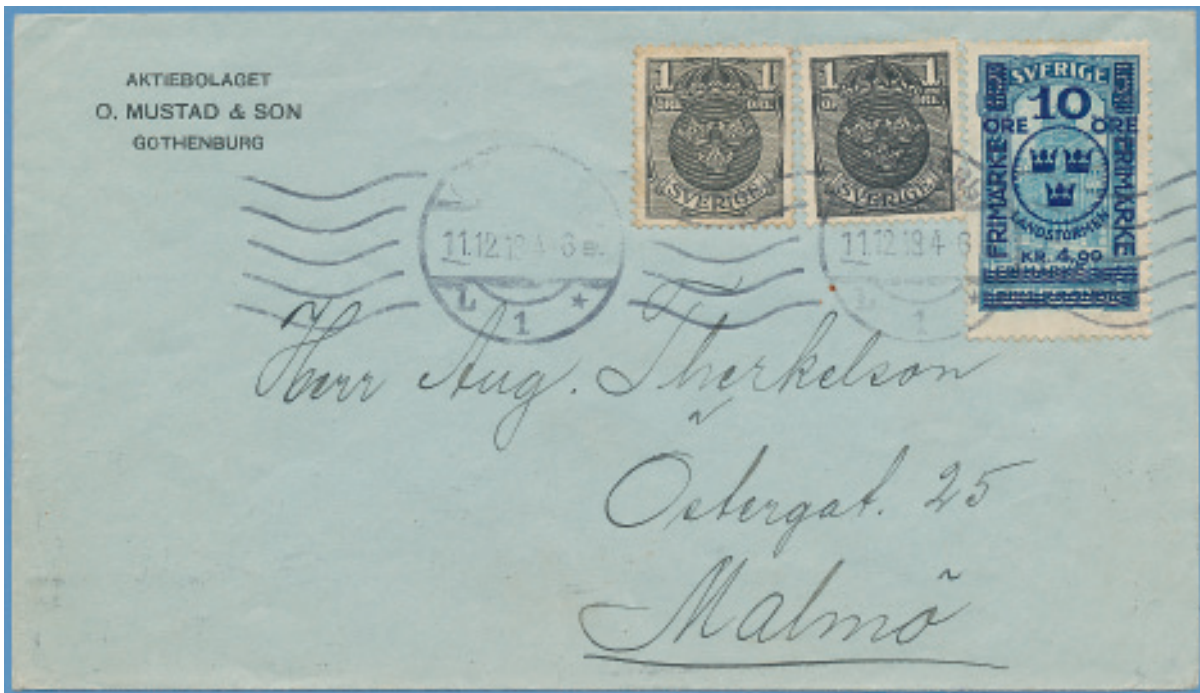 AKTIEBOLAGET
O. MUSTAD & SON
GOTHENBURG
1 1
ÖRE ÖRE
SVERIGE
1 1
SVERIGE
SVERIGE
10
ÖRE ÖRE
FRIMÄRKE FRIMÄRKE
LANDSTORMEN
KR. 4,90
11.12.18 4-6 e.
L. 1
11.12.18 4-6
L. 1
Herr Aug. Therkelson
Östergat. 25
Malmö